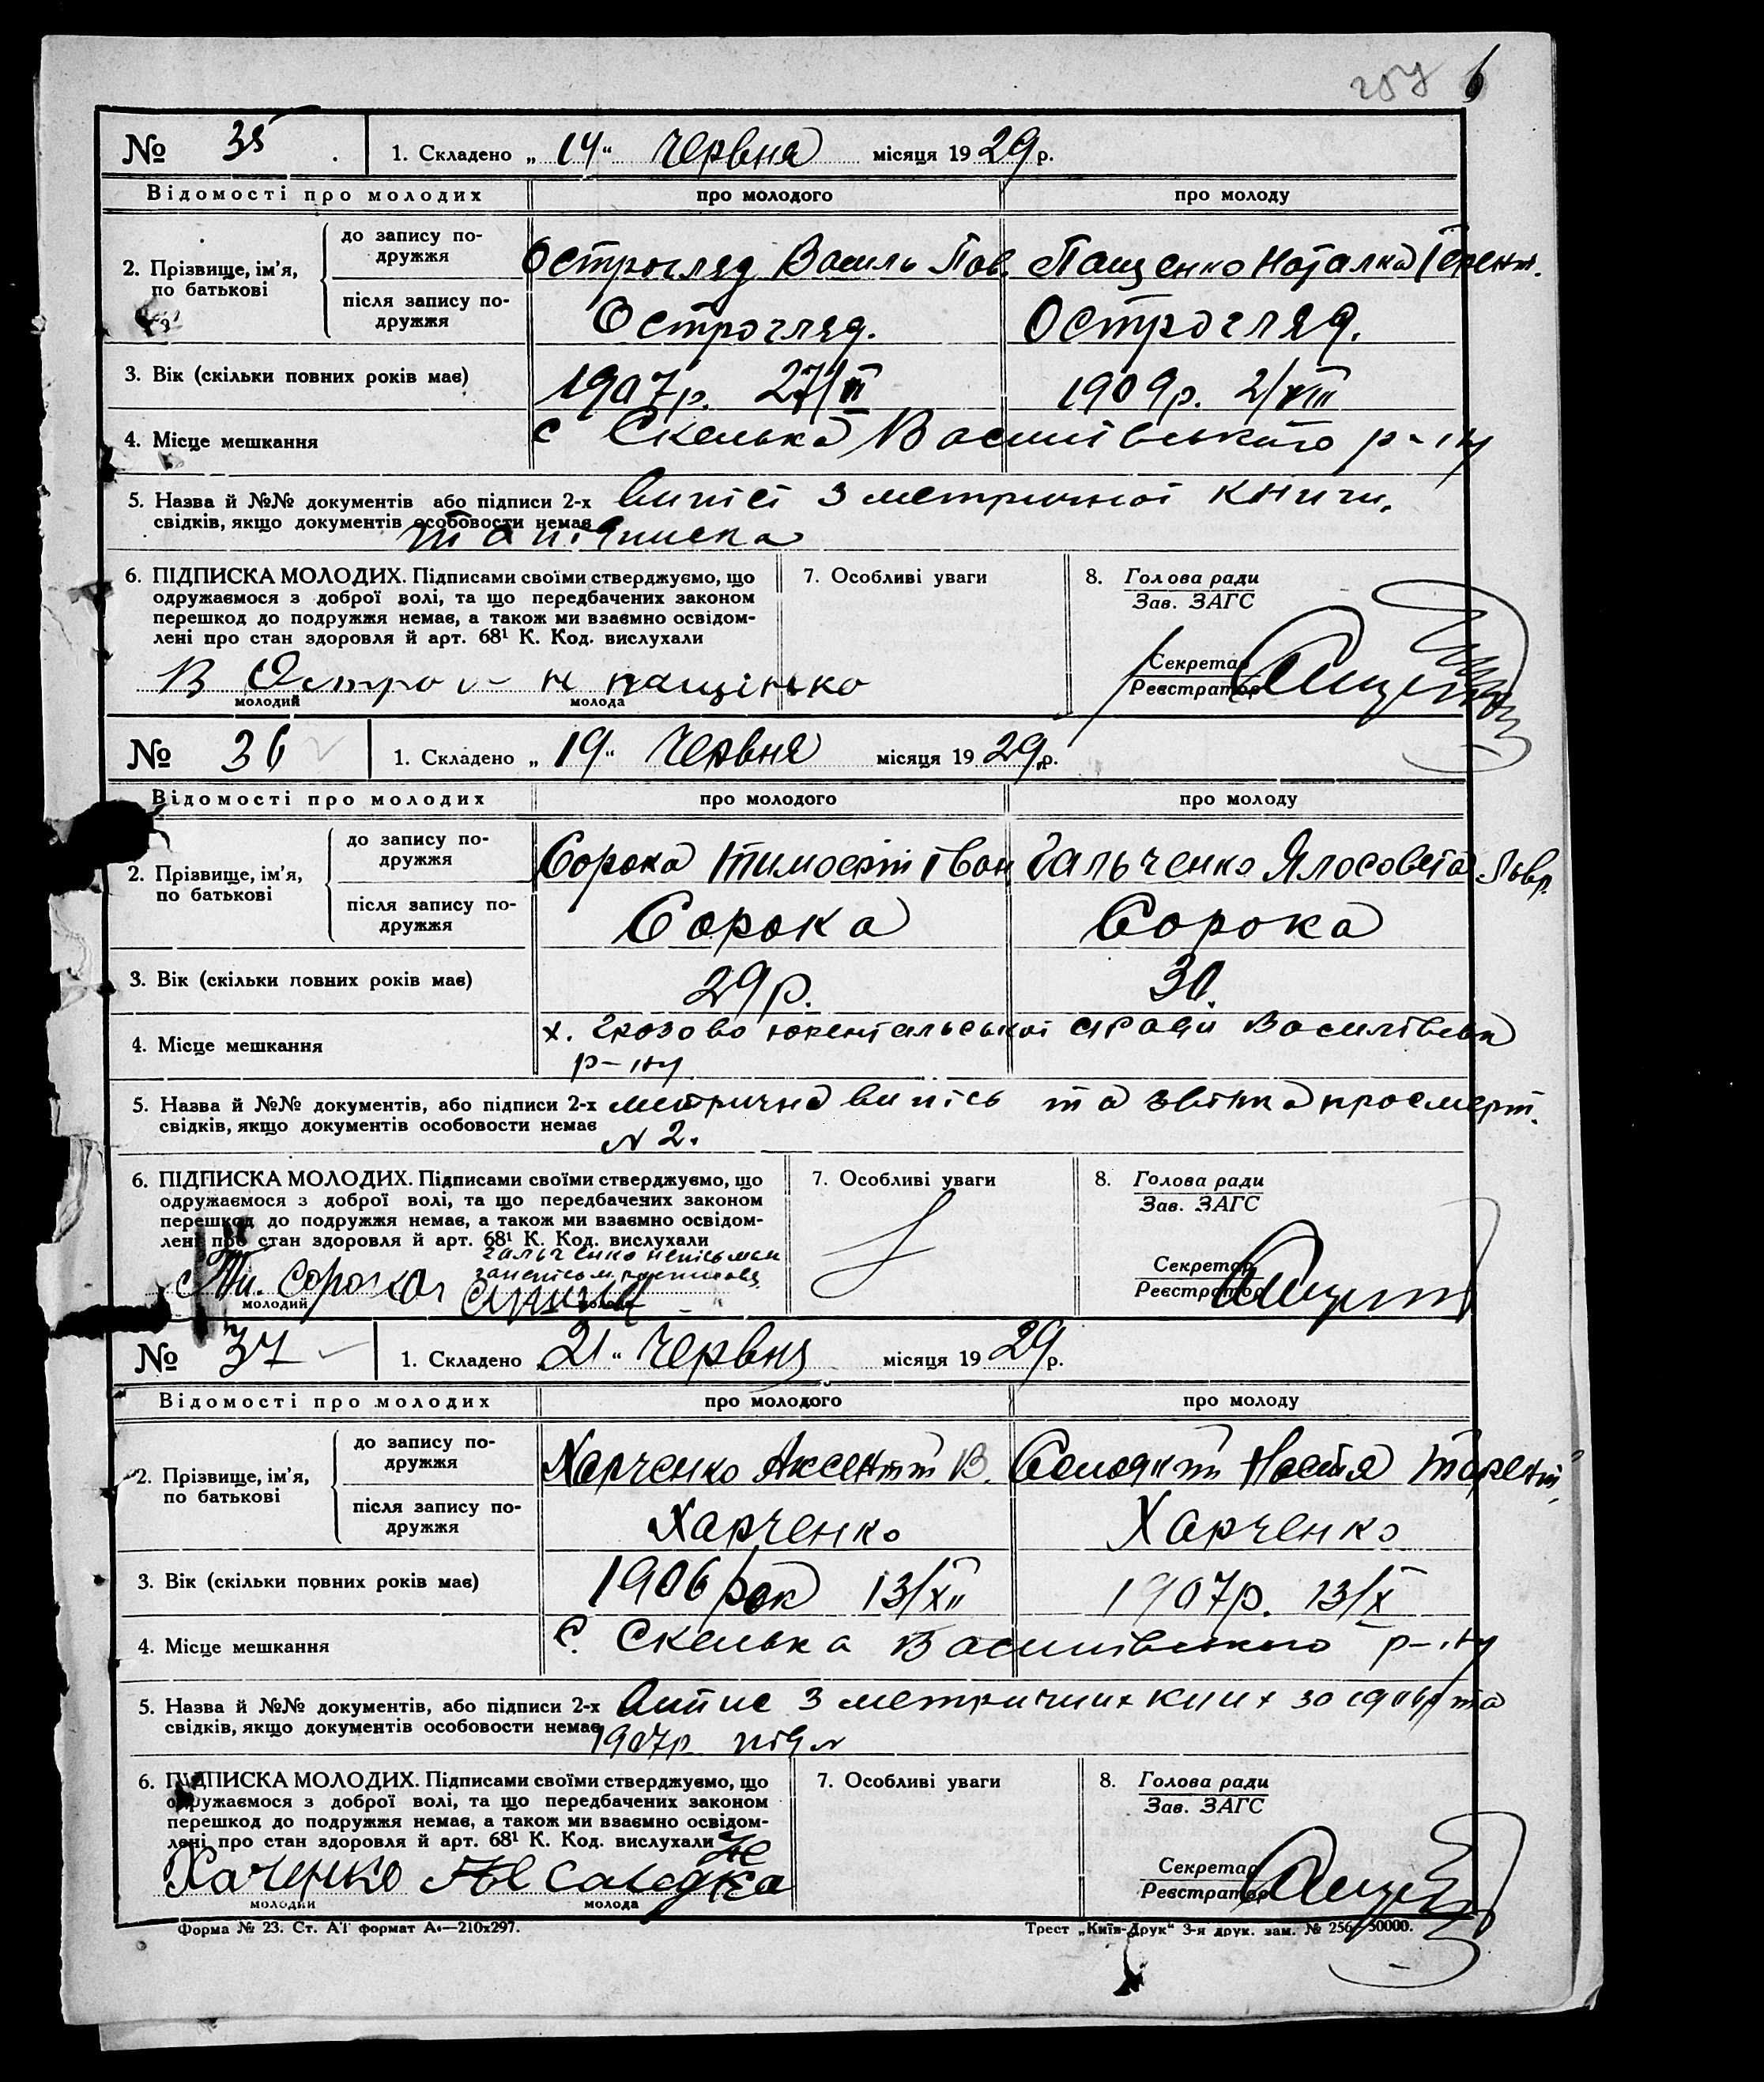 257 6
№ 35 1. Складено „14“ червня місяця 1929 р.
Відомості про молодих про молодого про молоду
2. Прізвище, ім'я, по батькові
до запису подружжя Острогляд Василь Пав. Пащенко Наталка Терент.
після запису подружжя Острогляд. Острогляд.
3. Вік (скільки повних років має) 1907р. 27/VI 1909р. 2/VIII
4. Місце мешкання с Скелька Василівського р-ну
5. Назва й №№ документів або підписи 2-х Випісі з метричної книги,
свідків, якщо документів особовости немає та підписка
6. ПІДПИСКА МОЛОДИХ. Підписами своїми стверджуємо, що
одружаємося з доброї волі, та що передбачених законом
перешкод до подружжя немає, а також ми взаємно освідом-
лені про стан здоровля й арт. 68¹ К. Код. вислухали
В Остро н пащінько
молодий молода
7. Особливі уваги
8. Голова ради
Зав. ЗАГС
Секретар
Реєстратор
№ 36 1. Складено „19“ червня місяця 1929 р.
Відомості про молодих про молодого про молоду
2. Прізвище, ім'я, по батькові
до запису подружжя Сорока Тимофій Іван Гальченко Ялосовета Лавр.
після запису подружжя Сорока Сорока
3. Вік (скільки повних років має) 29р. 30.
4. Місце мешкання х. Грозово сради Василівськ
р-ну
5. Назва й №№ документів, або підписи 2-х метрична випісь та про смерт.
свідків, якщо документів особовости немає N 2.
6. ПІДПИСКА МОЛОДИХ. Підписами своїми стверджуємо, що
одружаємося з доброї волі, та що передбачених законом
перешкод до подружжя немає, а також ми взаємно освідом-
лені про стан здоровля й арт. 68¹ К. Код. вислухали
гальченко неписьмен
Тим. Сорока
молодий молода
7. Особливі уваги
8. Голова ради
Зав. ЗАГС
Секретар
Реєстратор
№ 37 1. Складено „21“ червня місяця 1929 р.
Відомості про молодих про молодого про молоду
2. Прізвище, ім'я, по батькові
до запису подружжя Харченко Аксентій В. Настя Тарент.
після запису подружжя Харченко Харченко
3. Вік (скільки повних років має) 1906 рок 13/XII 1907р. 13/X
4. Місце мешкання С. Скелька Василівського р-ну
5. Назва й №№ документів, або підписи 2-х Випис з метричних кних за 1906р та
свідків, якщо документів особовости немає 1907р
6. ПІДПИСКА МОЛОДИХ. Підписами своїми стверджуємо, що
одружаємося з доброї волі, та що передбачених законом
перешкод до подружжя немає, а також ми взаємно освідом-
лені про стан здоровля й арт. 68¹ К. Код. вислухали
Хаченко
молодий молода
7. Особливі уваги
8. Голова ради
Зав. ЗАГС
Секретар
Реєстратор
Форма № 23. Ст. АІ формат А4—210х297. Трест „Київ-Друк“ 3-я друк. зам. № 256—50000.